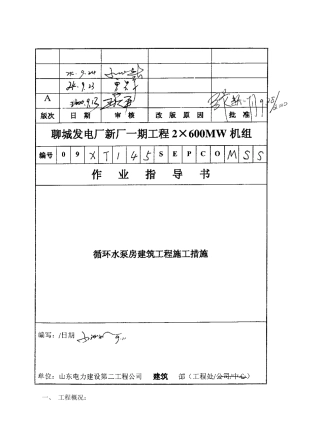 A
版次 日 期 审 核 改 版 原 因 批 准
聊城发电厂新厂一期工程 2×600MW 机组
编号 0 9 X T 1 4 5 S E P C O M S S
作 业 指 导 书
循环水泵房建筑工程施工措施
编写：/日期
单位：山东电力建设第二工程公司 建筑 部（工程处/公司/中心）
一、 工程概况：